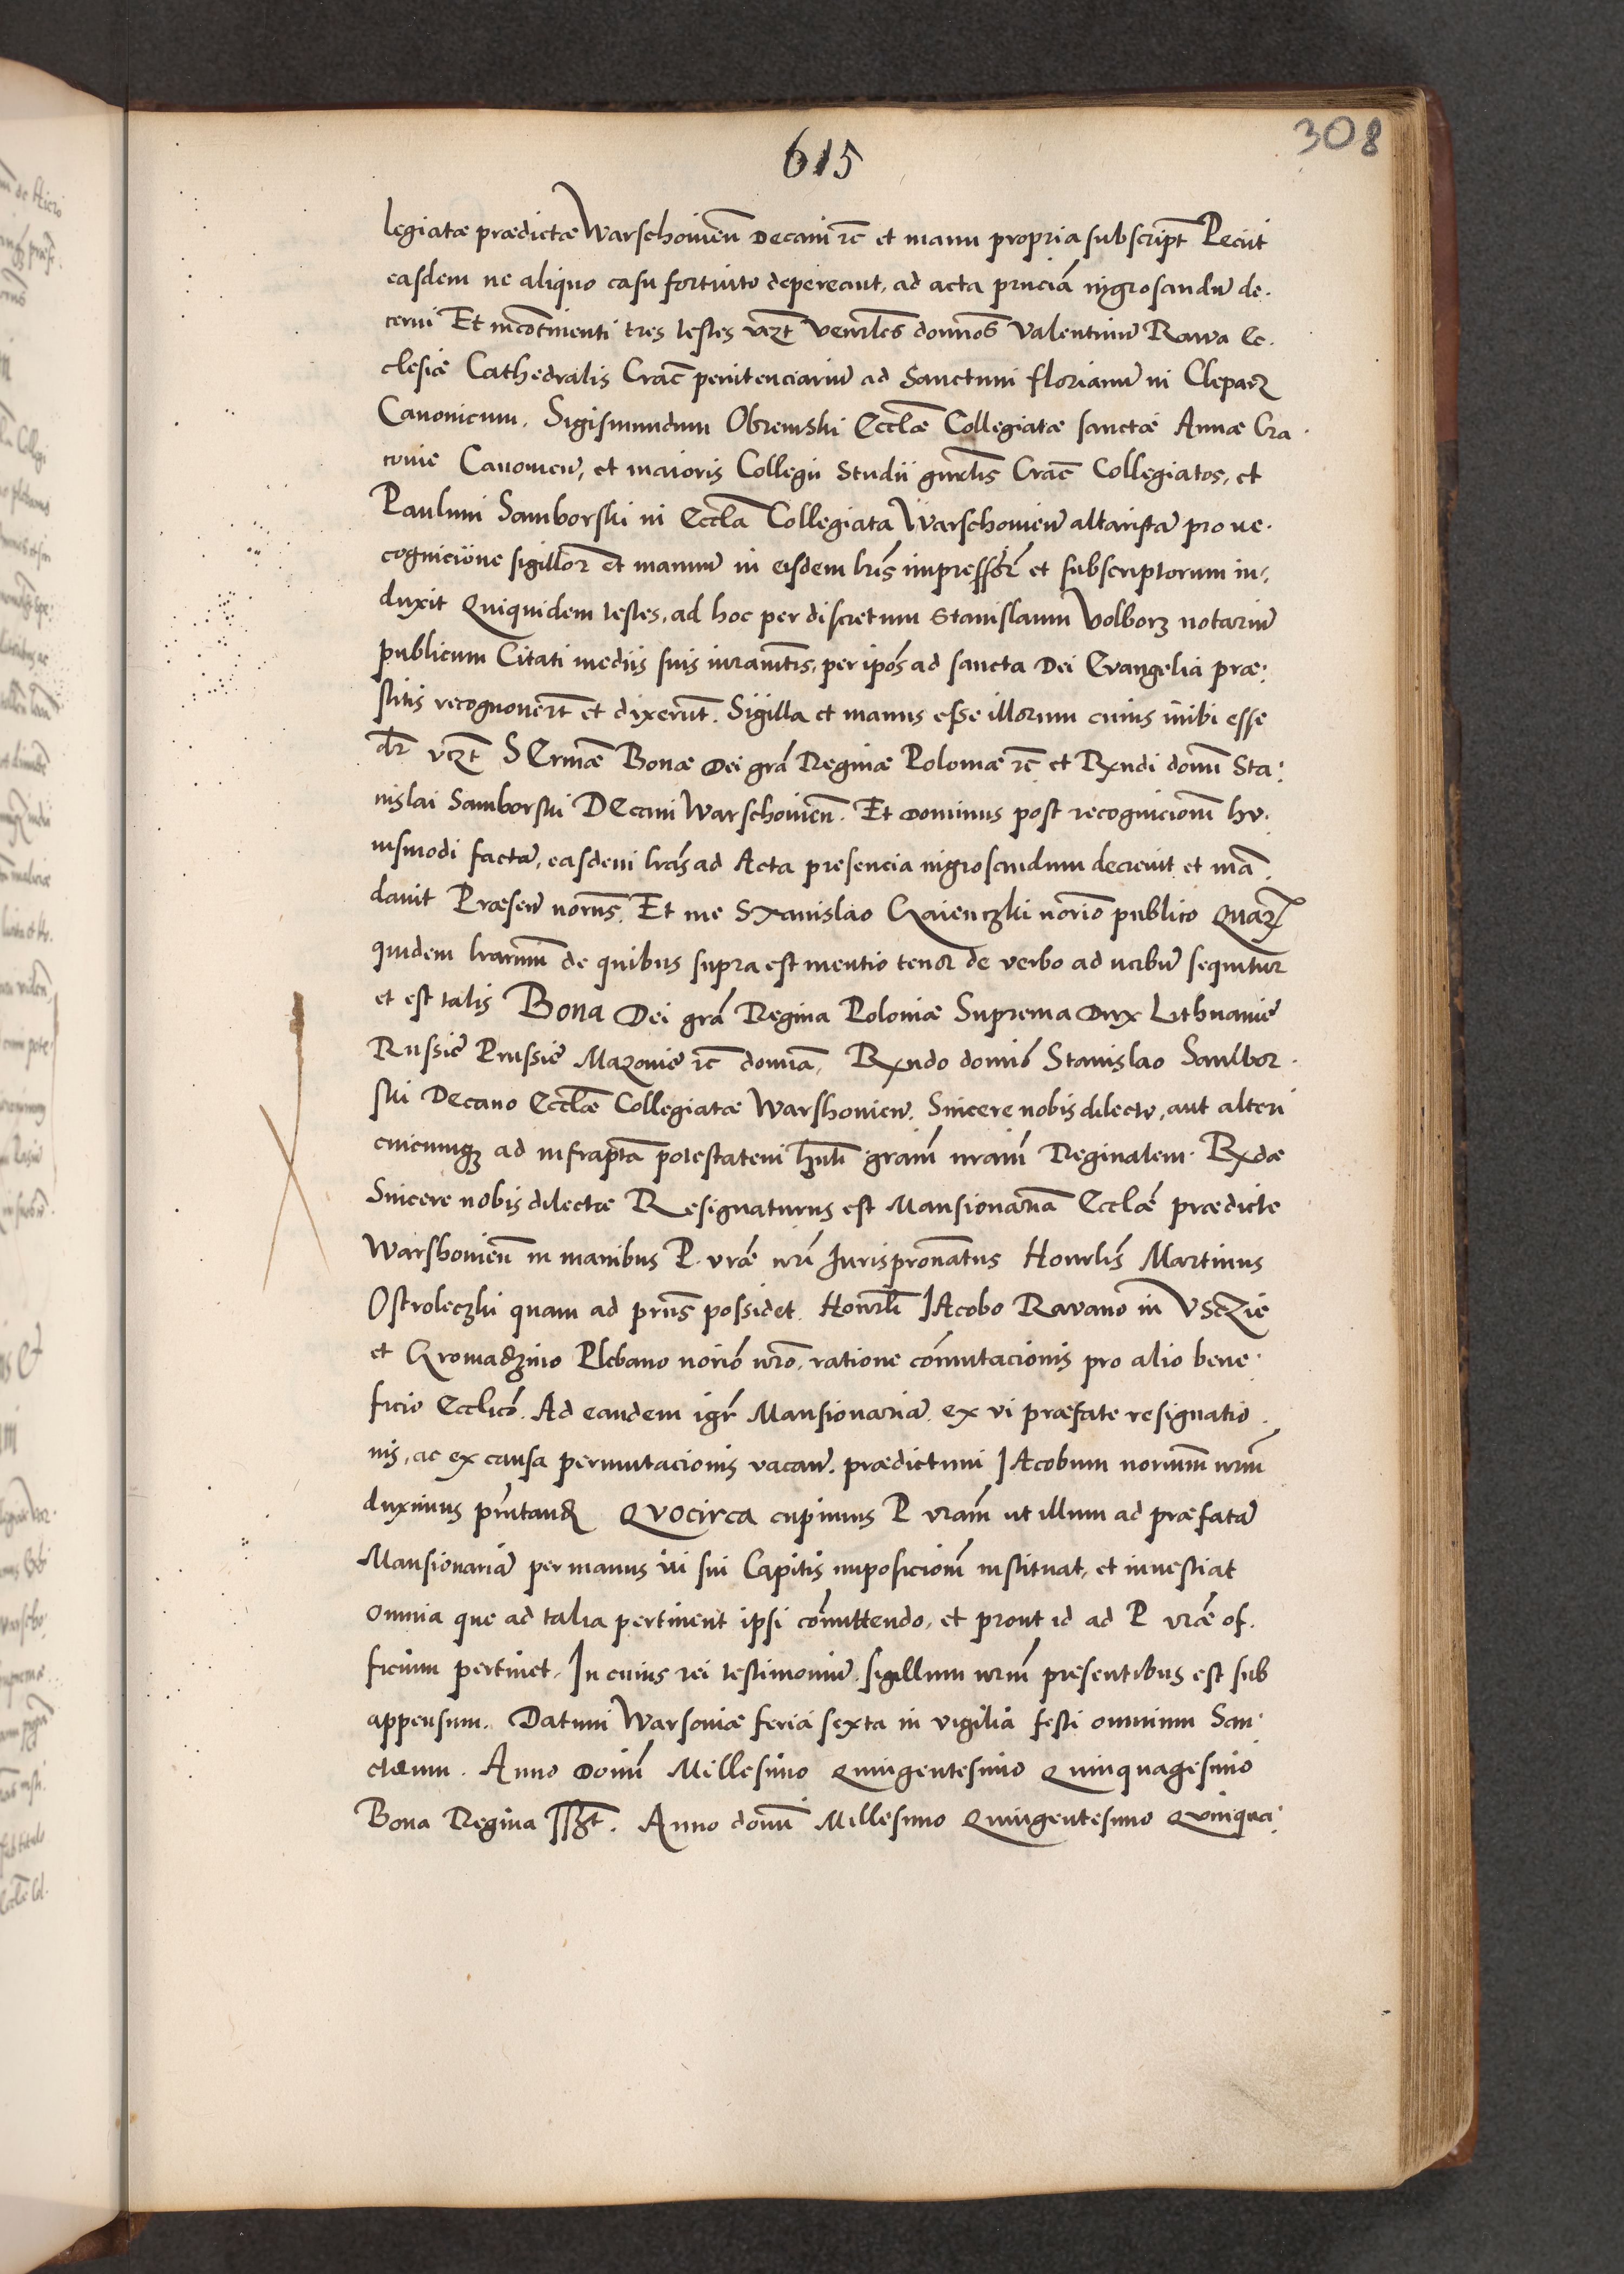 615
308
legiatæ prædictæ Warschovien̄ Decani rc̄ et manu propria subscript̄ Peciit
easdem ne aliquo casu fortuito depereant, ad acta pn̄ciā ingrosandū de¬
cerni Et incōtinenti tres testes vczt̄ Venrl̄es domnōs Valentinū Rawa Ec¬
clesiæ Cathedralis Crac̄ penitenciariū ad Sanctum florianū in Clepar
Canonicum, Sigismundum Obremski Eccl̄æ Collegiatæ sanctæ Annæ Cra¬
coviē Canonicū, et maioris Collegii Studii gnr̄lis Crac̄ Collegiatos, et
Paulum Samborski in Eccl̄a Collegiata Warschovien̄ altaristā pro re¬
cognicione sigillor̄ et manuū in eisdem lrīs impressor̄ et subscriptorum in¬
duxit Quiquidem testes, ad hoc per discretum Stanislaum Volborz notariū
publicum Citati mediis suis iuramn̄tis, per ipōs ad sancta Dei Evangelia præ¬
stitis recognoverūt et dixerūt. Sigilla et manus esse illorum cuius inibi esse
dr̄ vczt̄ SErmǣ Bonæ Dei grā Reginæ Poloniæ rc̄ et Rxndi domnī Sta¬
nislai Samborski DEcani Warschovien̄. Et Dominus post recognicionē hu¬
iusmodi factā, easdem lrās ad Acta presencia ingrosandum decrevit et mā¬
davit Præsen̄ nor̄ns. Et me STanislao Craienczki norīo publico Quar
quidem lrārum de quibus supra est mentio tenor de verbo ad verbū sequitur
et est talis Bona Dei grā Regina Poloniæ Suprema Dux Lithuaniē
Russiē Prussiē Mazoviē rc̄ domīa, Rxndo domīo Stanislao Sambor¬
ski Decano Eccl̄æ Collegiatæ Warshovien̄. Sincere nobis dilecto, aut alteri
cuicumq ad infrapt̄a potestatem hn̄ti grām nrām Reginalem. Rxdæ
Sincere nobis dilectæ Resignaturus est Mansionariā Eccl̄æ prædicte
Warshovien̄ in manibus P. vrǣ nrī Jurispronatus Honrl̄is Martinus
Ostroleczki quam ad prn̄s possidet. Honrl̄i JAcobo Ravano in VScZie
et Gromadzino Plebano norīo nrō, ratione cōmutacionis pro alio bene¬
ficio Eccl̄ico. Ad eandem igr̄ Mansionariā, ex vi præfate resignatio¬
nis, ac ex causa permutacionis vacan̄. prædictum JAcobum norium̄ nrūm
duximus prn̄tand QVOcirca cupimus P. vrām ut illum ad præfatā
Mansionariā per manus vi sui Capitis imposicionē instituat, et investiat
omnia que ad talia pertinent ipsi cōmittendo, et prout id ad P. vrǣ of¬
ficium pertinet. In cuius rei testimoniū sigillum nrūm presentibus est sub
appensum. Datum Warsoviæ feria sexta in vigilia festi omnium San¬
ctorum. Anno Domī Millesimo Quingentesimo Quinquagesimo
Bona Regina sszt̄. Anno domnī Millesimo Quingentesimo Quinqua¬